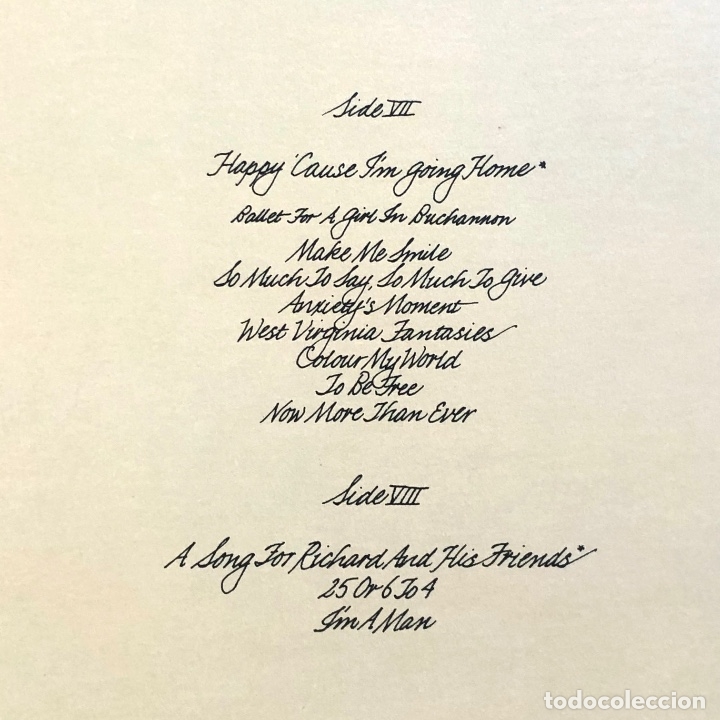 Side VII
Happy 'Cause I'm going Home*
Ballet For A Girl In Buchannon
Make Me Smile
So Much To Say, So Much To Give
Anxiety's Moment
West Virginia Fantasies
Colour My World
To Be Free
Now More Than Ever
Side VIII
A Song For Richard And His Friends*
25 Or 6 To 4
I'm A Man
todocoleccion